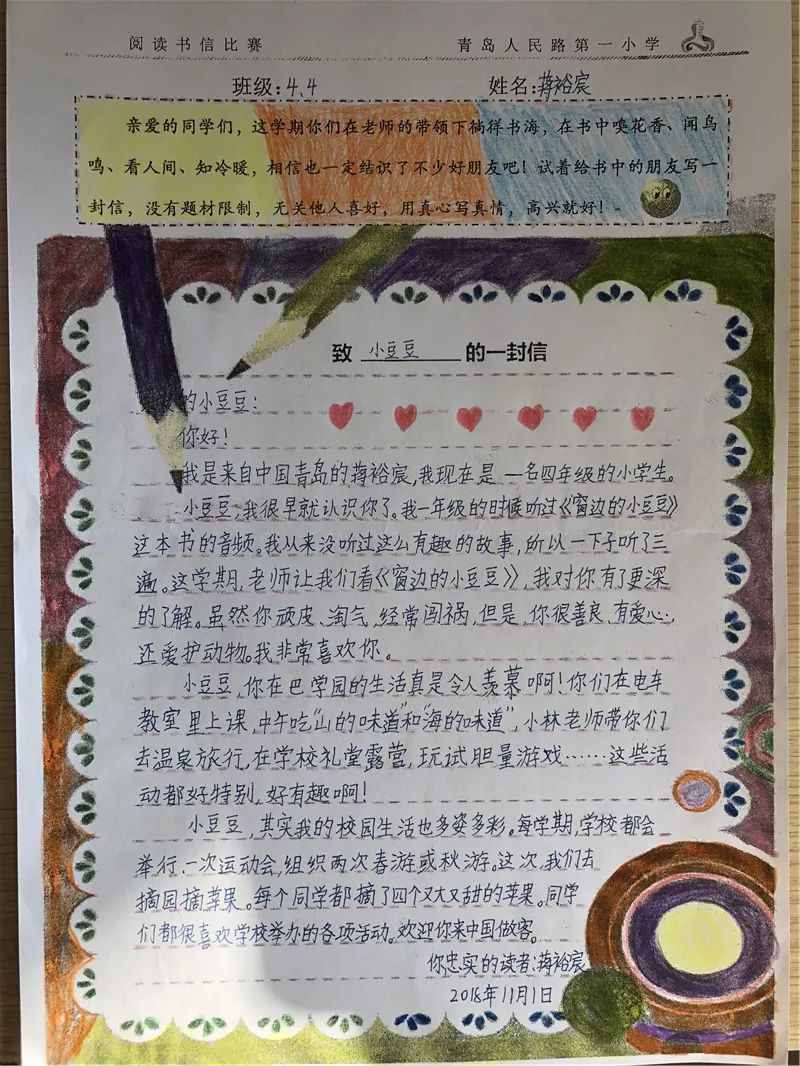 阅读书信比赛 青岛人民路第一小学
班级:4.4 姓名:蒋裕宸
亲爱的同学们，这学期你们在老师的带领下徜徉书海，在书中嗅花香、闻鸟
鸣、看人间、知冷暖，相信也一定结识了不少好朋友吧！试着给书中的朋友写一
封信，没有题材限制，无关他人喜好，用真心写真情，高兴就好！
致 小豆豆 的一封信
的小豆豆:
你好!
我是来自中国青岛的蒋裕宸,我现在是一名四年级的小学生。
小豆豆,我很早就认识你了。我一年级的时候听过《窗边的小豆豆》
这本书的音频。我从来没听过这么有趣的故事,所以一下子听了三
遍。这学期,老师让我们看《窗边的小豆豆》,我对你有了更深
的了解。虽然你顽皮、淘气,经常闯祸,但是,你很善良、有爱心,
还爱护动物。我非常喜欢你。
小豆豆,你在巴学园的生活真是令人羡慕啊!你们在电车
教室里上课,中午吃“山的味道”和“海的味道”,小林老师带你们
去温泉旅行,在学校礼堂露营,玩试胆量游戏……这些活
动都好特别,好有趣啊!
小豆豆,其实我的校园生活也多姿多彩。每学期,学校都会
举行一次运动会,组织两次春游或秋游。这次,我们去
摘园摘苹果。每个同学都摘了四个又大又甜的苹果。同学
们都很喜欢学校举办的各项活动。欢迎你来中国做客。
你忠实的读者:蒋裕宸
2018年11月1日